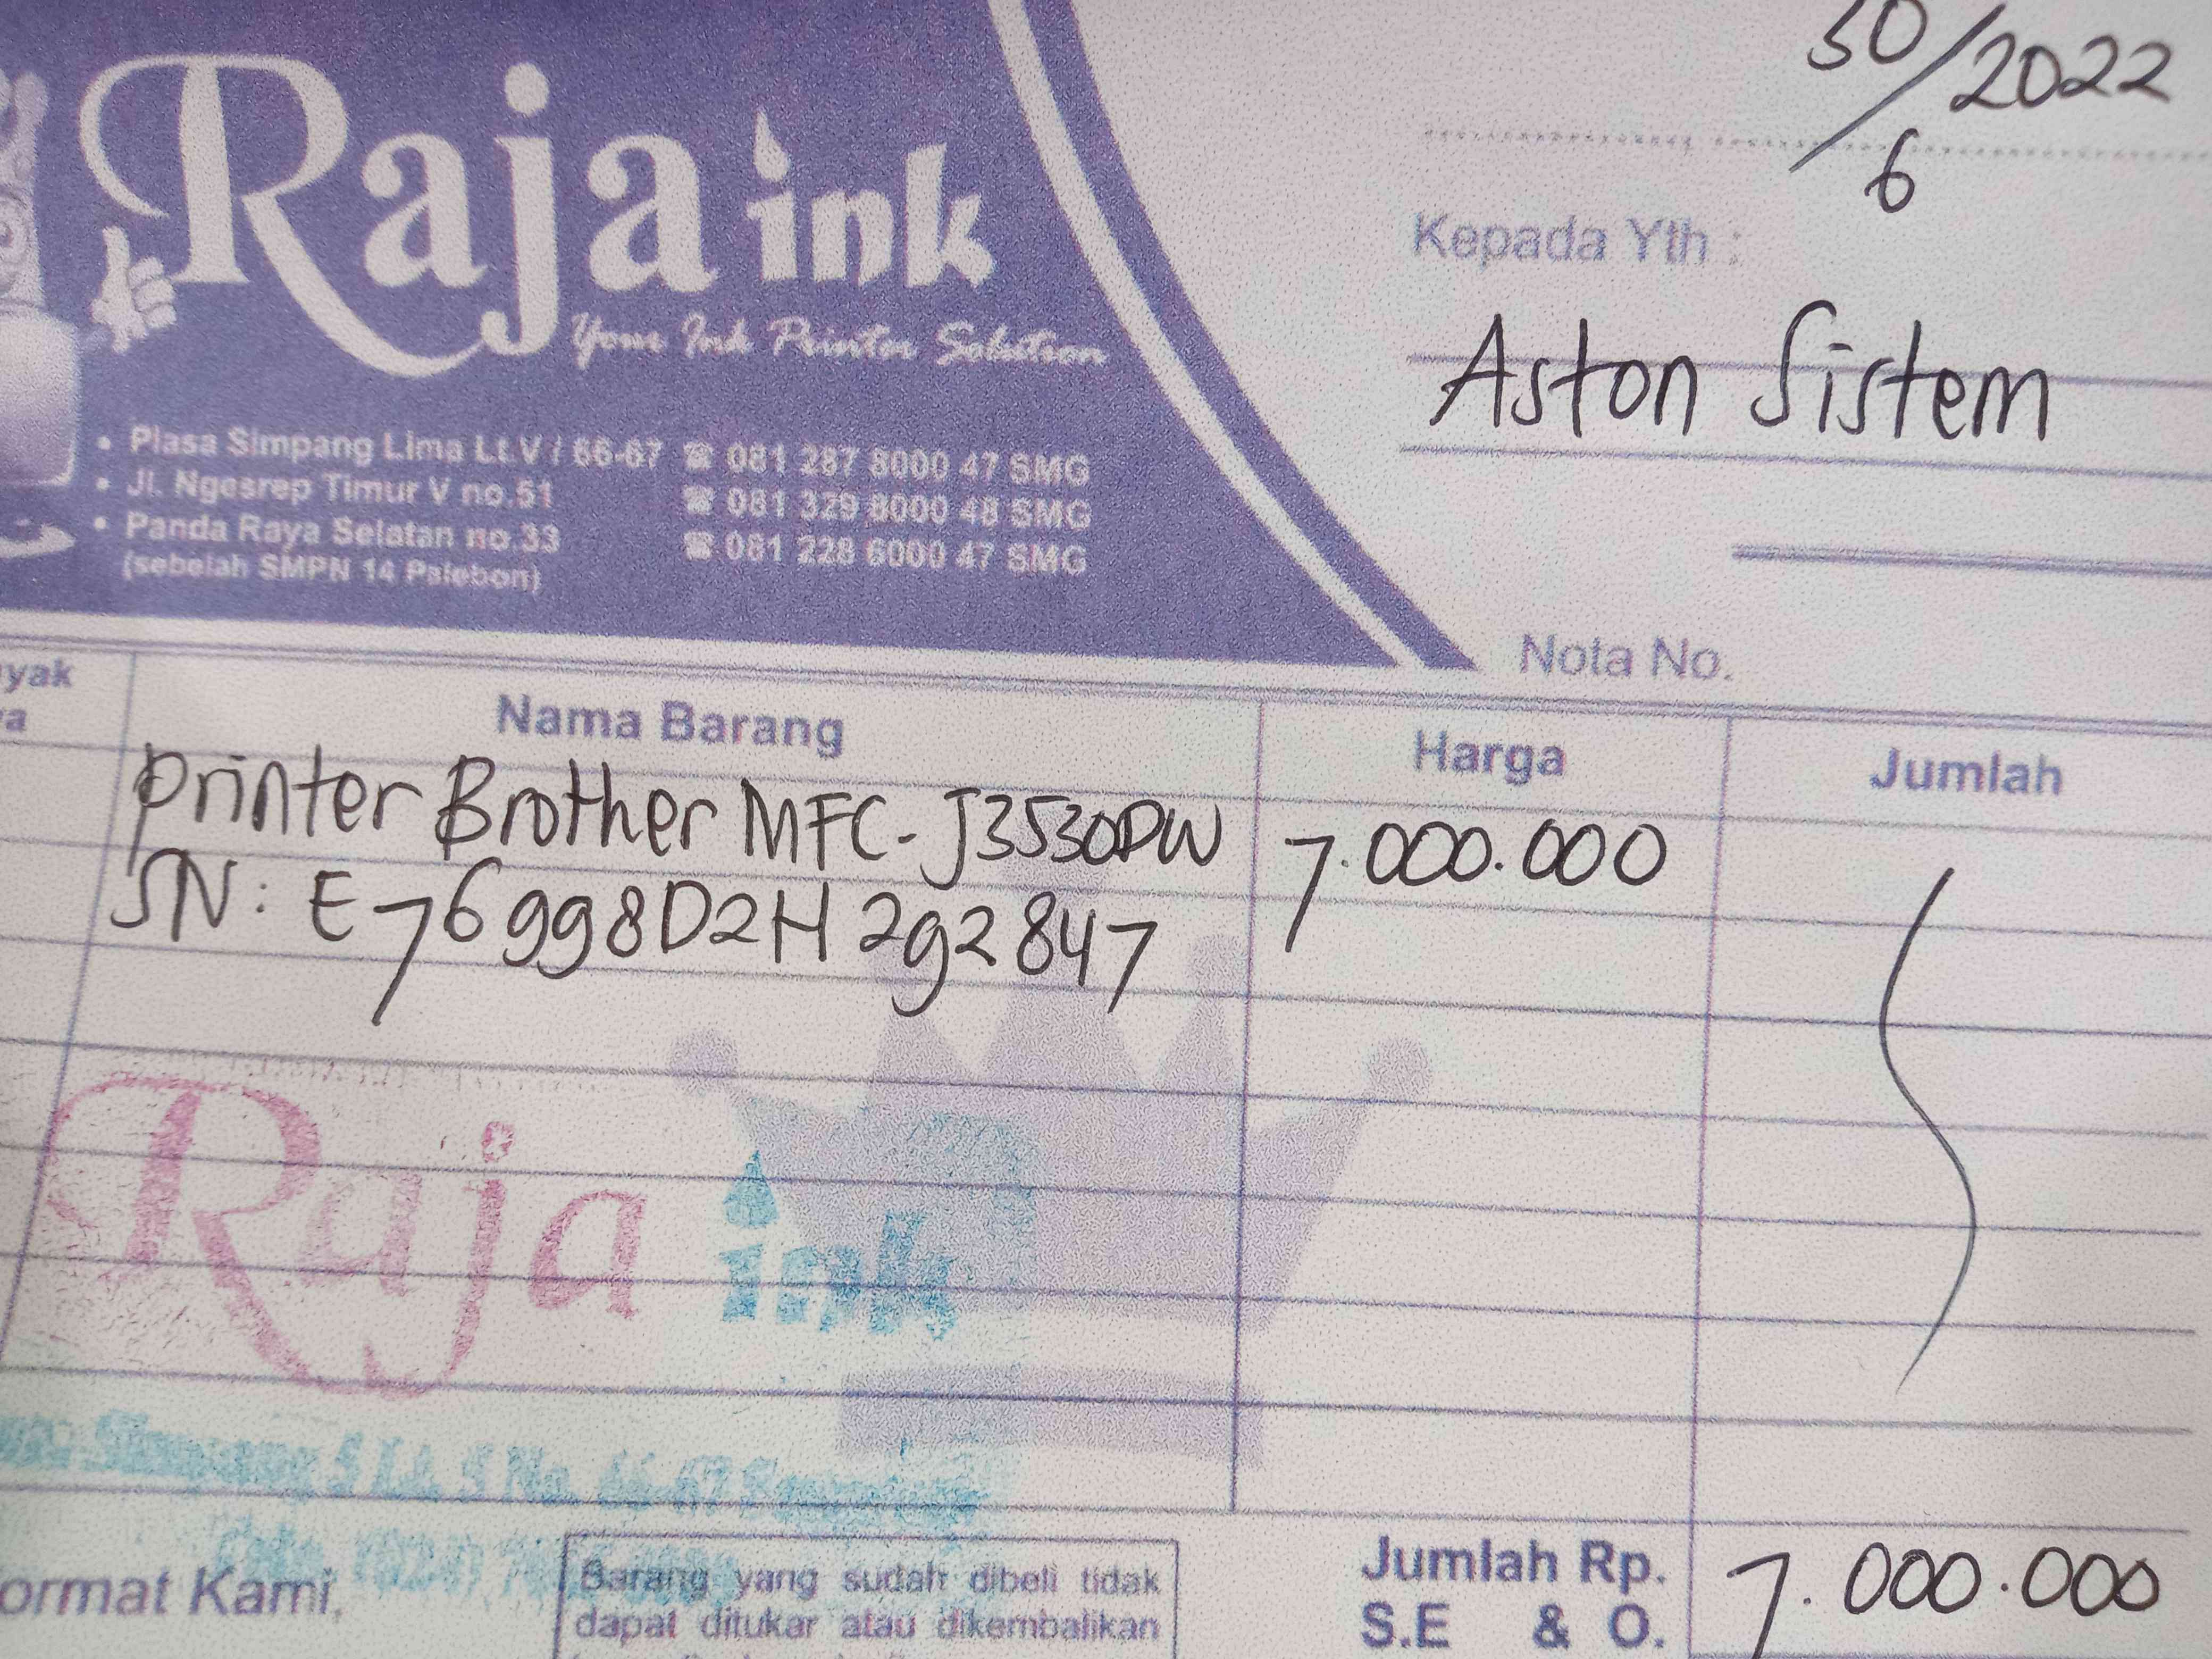 30/6 2022
Raja ink
Your Ink Printer Solution
• Plasa Simpang Lima Lt.V / 66-67 ☎ 081 287 8000 47 SMG
• Jl. Ngesrep Timur V no.51 ☎ 081 329 8000 48 SMG
• Panda Raya Selatan no.33 ☎ 081 228 6000 47 SMG
(sebelah SMPN 14 Palebon)
Kepada Yth :
Aston Sistem
Nota No.
yak
a
Nama Barang Harga Jumlah
Printer Brother MFC-J3530DW 7.000.000
SN: E76998D2H292847
Raja ink
Simpang 5 Lt. 5 No. 66-67 Semarang
ormat Kami,
Barang yang sudah dibeli tidak
dapat ditukar atau dikembalikan
Jumlah Rp. 7.000.000
S.E & O.